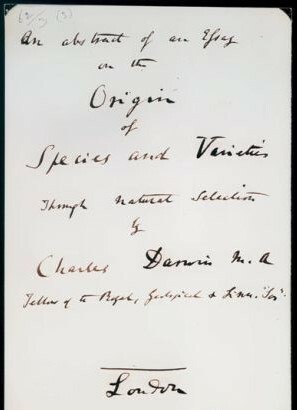 An abstract of an Essay
on the
Origin
of
Species and Varieties
Through natural selection
by
Charles Darwin M. A
Fellow of the Royal, Geological & Linn. Soc.
London